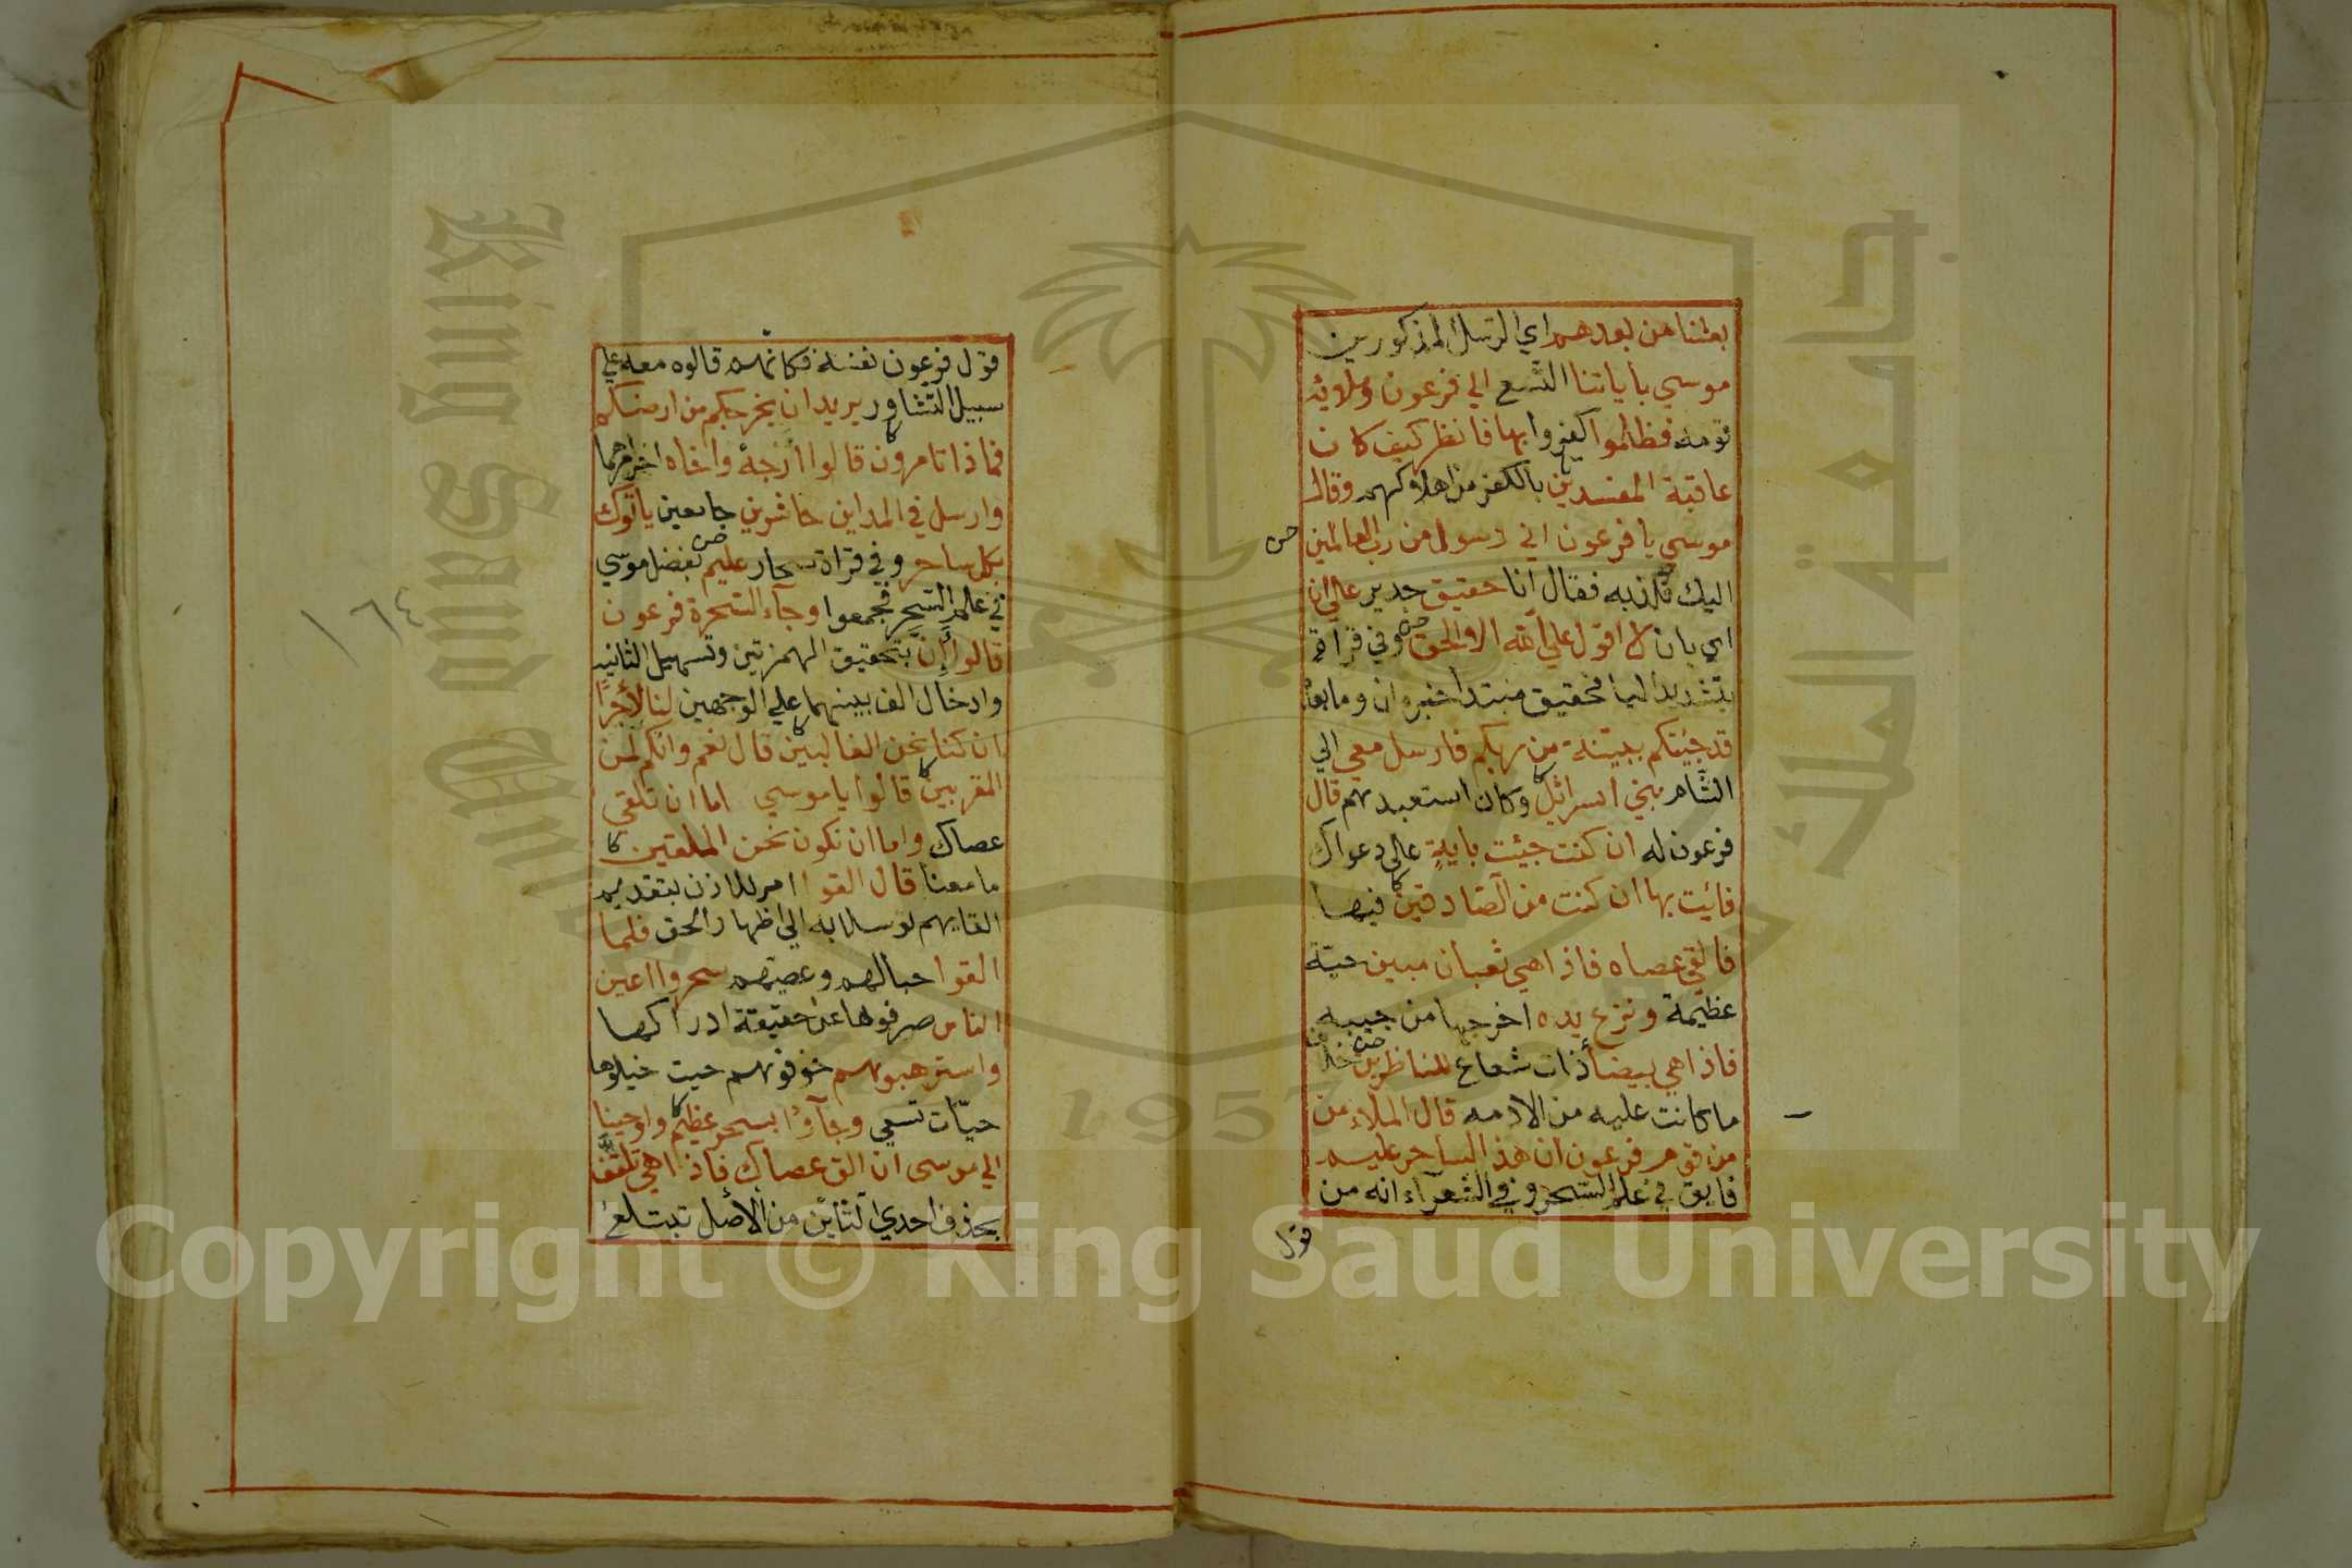 بعثنا من بعدهم اي الرسل المذكورين
موسي باياتنا التسع الي فرعون وملايه
قومه فظلموا كفروا بها فانظر كيف كان
عاقبة المفسدين بالكفر من اهلاكهم وقال
موسي يا فرعون اني رسول من رب العالمين
اليك فكذبه فقال انا حقيق جدير علي ان
اي بان لا اقول علي الله الا الحق وفي قراة
بتشديد اليا فحقيق مبتدا خبره ان وما بعد
قد جيتكم ببينة من ربكم فارسل معي الي
الشام بني اسرائيل وكان استعبدهم قال
فرعون له ان كنت جيئت باية علي دعواك
فائيت بها ان كنت من الصادقين فيها
فالقي عصاه فاذا هي ثعبان مبين حية
عظيمة ونزع يده اخرجها من جيبه
فاذا هي بيضا ذات شعاع للناظرين خلاف
ما كانت عليه من الادمه قال الملاء من
من قوم فرعون ان هذا لساحر عليم
فايق في علم السحر وفي الشعرآء انه من
قول
قول فرعون نفسه فكانهم قالوه معه علي
سبيل التشاور يريد ان يخرجكم من ارضكم
فماذا تامرون قالوا أرجه واخاه اخر امرهما
وارسل في المداين حاشرين جامعين ياتوك
بكل ساحر وفي قراة سحار عليم بفضل موسي
في علم السحر فجمعوا وجآء السحرة فرعون
قالوا أإن بتحقيق الهمزتين وتسهيل الثانيه
وادخال الف بينهما علي الوجهين لنا لأجرا
ان كنا نحن الغالبين قال نعم وانكم لمن
المقربين قالوا يا موسي اما ان تلقي
عصاك واما ان نكون نحن الملقين
ما معنا قال القوا امر للاذن بتقديم
القايهم توسلا به الي اظهار الحق فلما
القوا حبالهم وعصيهم سحروا اعين
الناس صرفوها عن حقيقة ادراكها
واسترهبوهم خوفوهم حيث خيلوها
حيّات تسعي وجآؤا بسحر عظيم واوحينا
الي موسى ان الق عصاك فاذا هي تلقف
بحذف احدي التائين من الأصل تبتلع
١٦٤
King Saud University
جامعة الملك
1957
Copyright © King Saud University